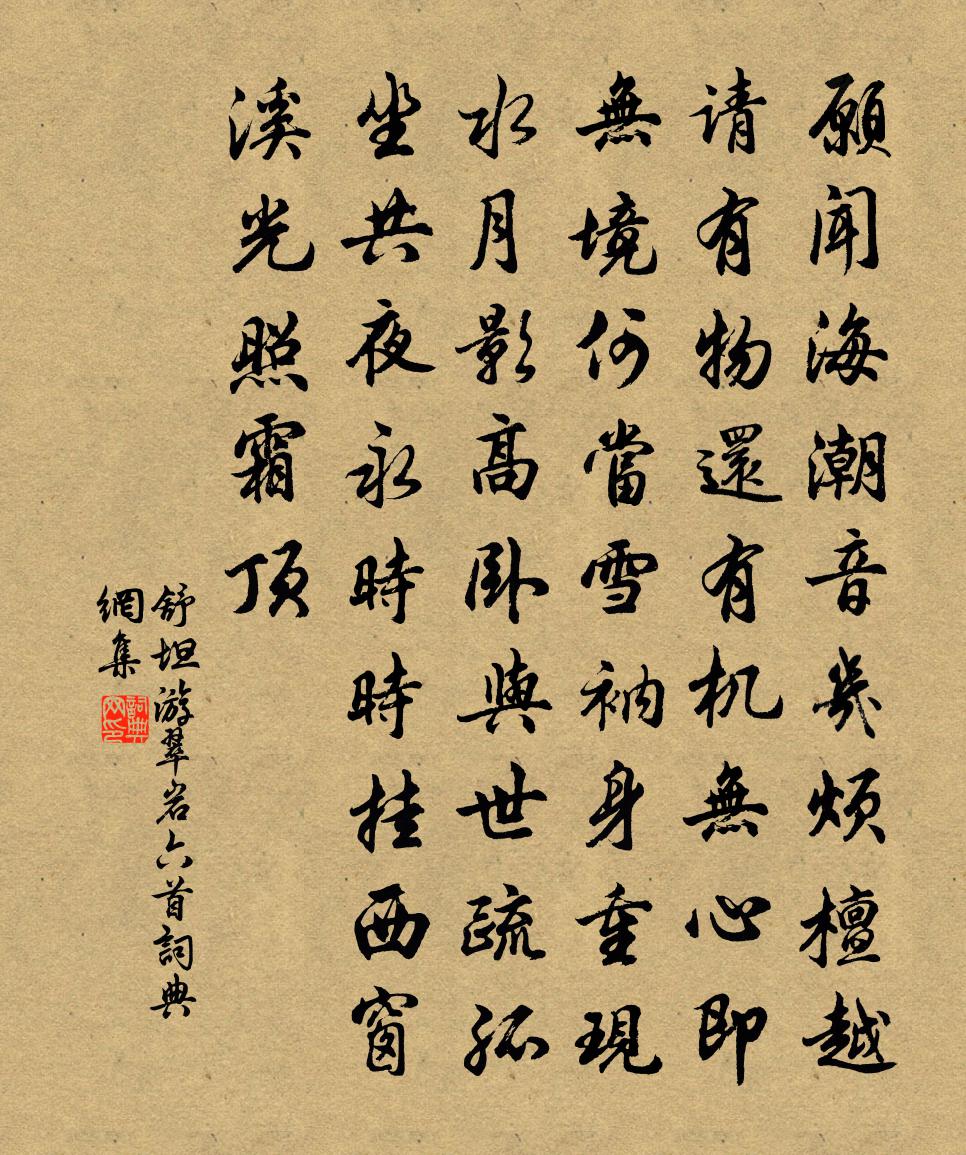 願闻海潮音幾煩檀越
请有物還有机無心即
無境何當雪衲身重現
水月影高卧與世疏孤
坐共夜永時時挂西窗
溪光照霜顶
舒坦游翠岩六首詞典
網集
詞典
网印